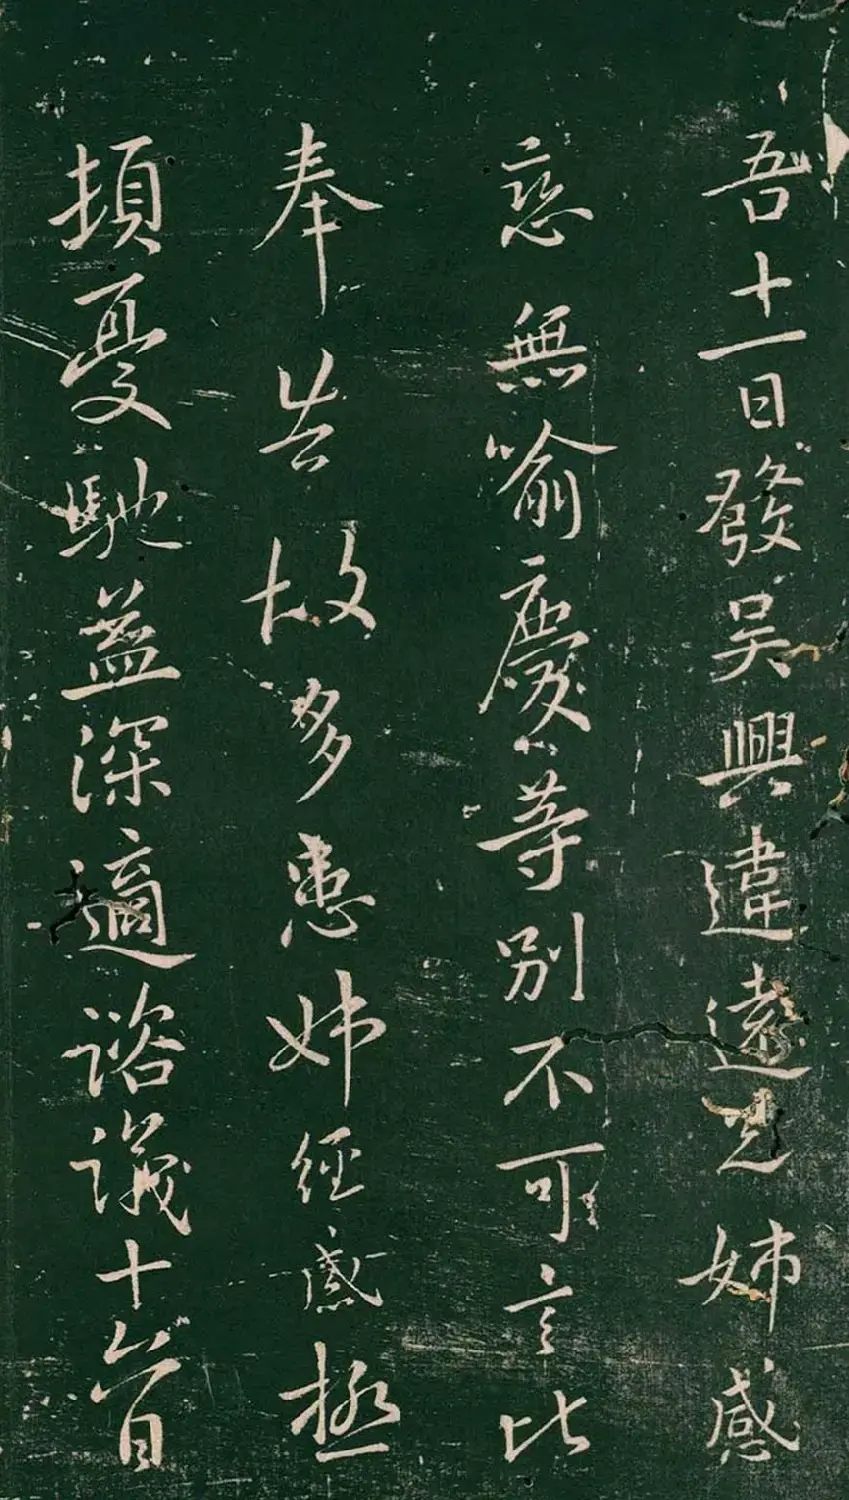 吾十一日發吳興違遠兄姊感
戀無喻慶等別不可言比
奉告故多患姊經感極
頓憂馳益深適諮議十六日